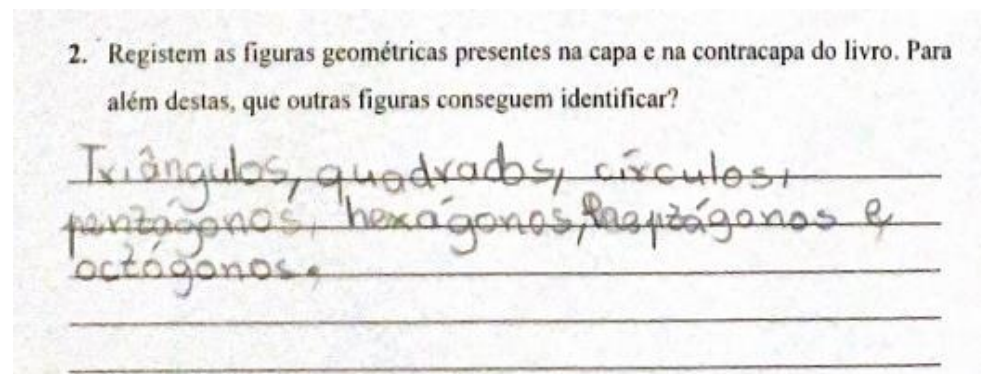 2. Registem as figuras geométricas presentes na capa e na contracapa do livro. Para
além destas, que outras figuras conseguem identificar?
Triângulos, quadrados, círculos,
pentágonos, hexágonos, heptágonos e
octógonos.